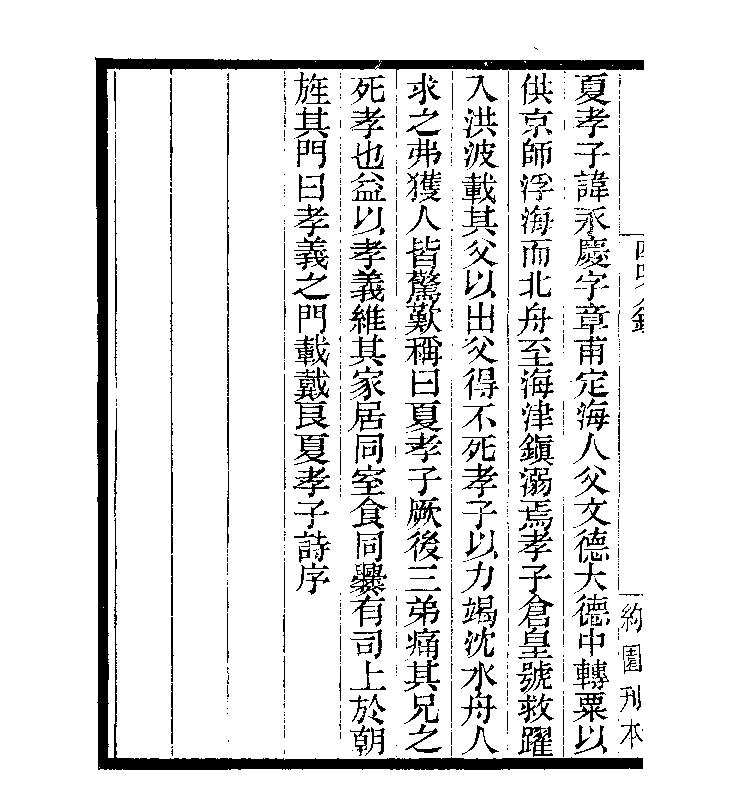 約園刊本
夏孝子諱永慶字章甫定海人父文德大德中轉粟以
供京師浮海而北舟至海津鎭溺焉孝子倉皇號救躍
入洪波載其父以出父得不死孝子以力竭沈水舟人
求之弗獲人皆驚歎稱曰夏孝子厥後三弟痛其兄之
死孝也益以孝義維其家居同室食同爨有司上於朝
旌其門曰孝義之門載戴良夏孝子詩序